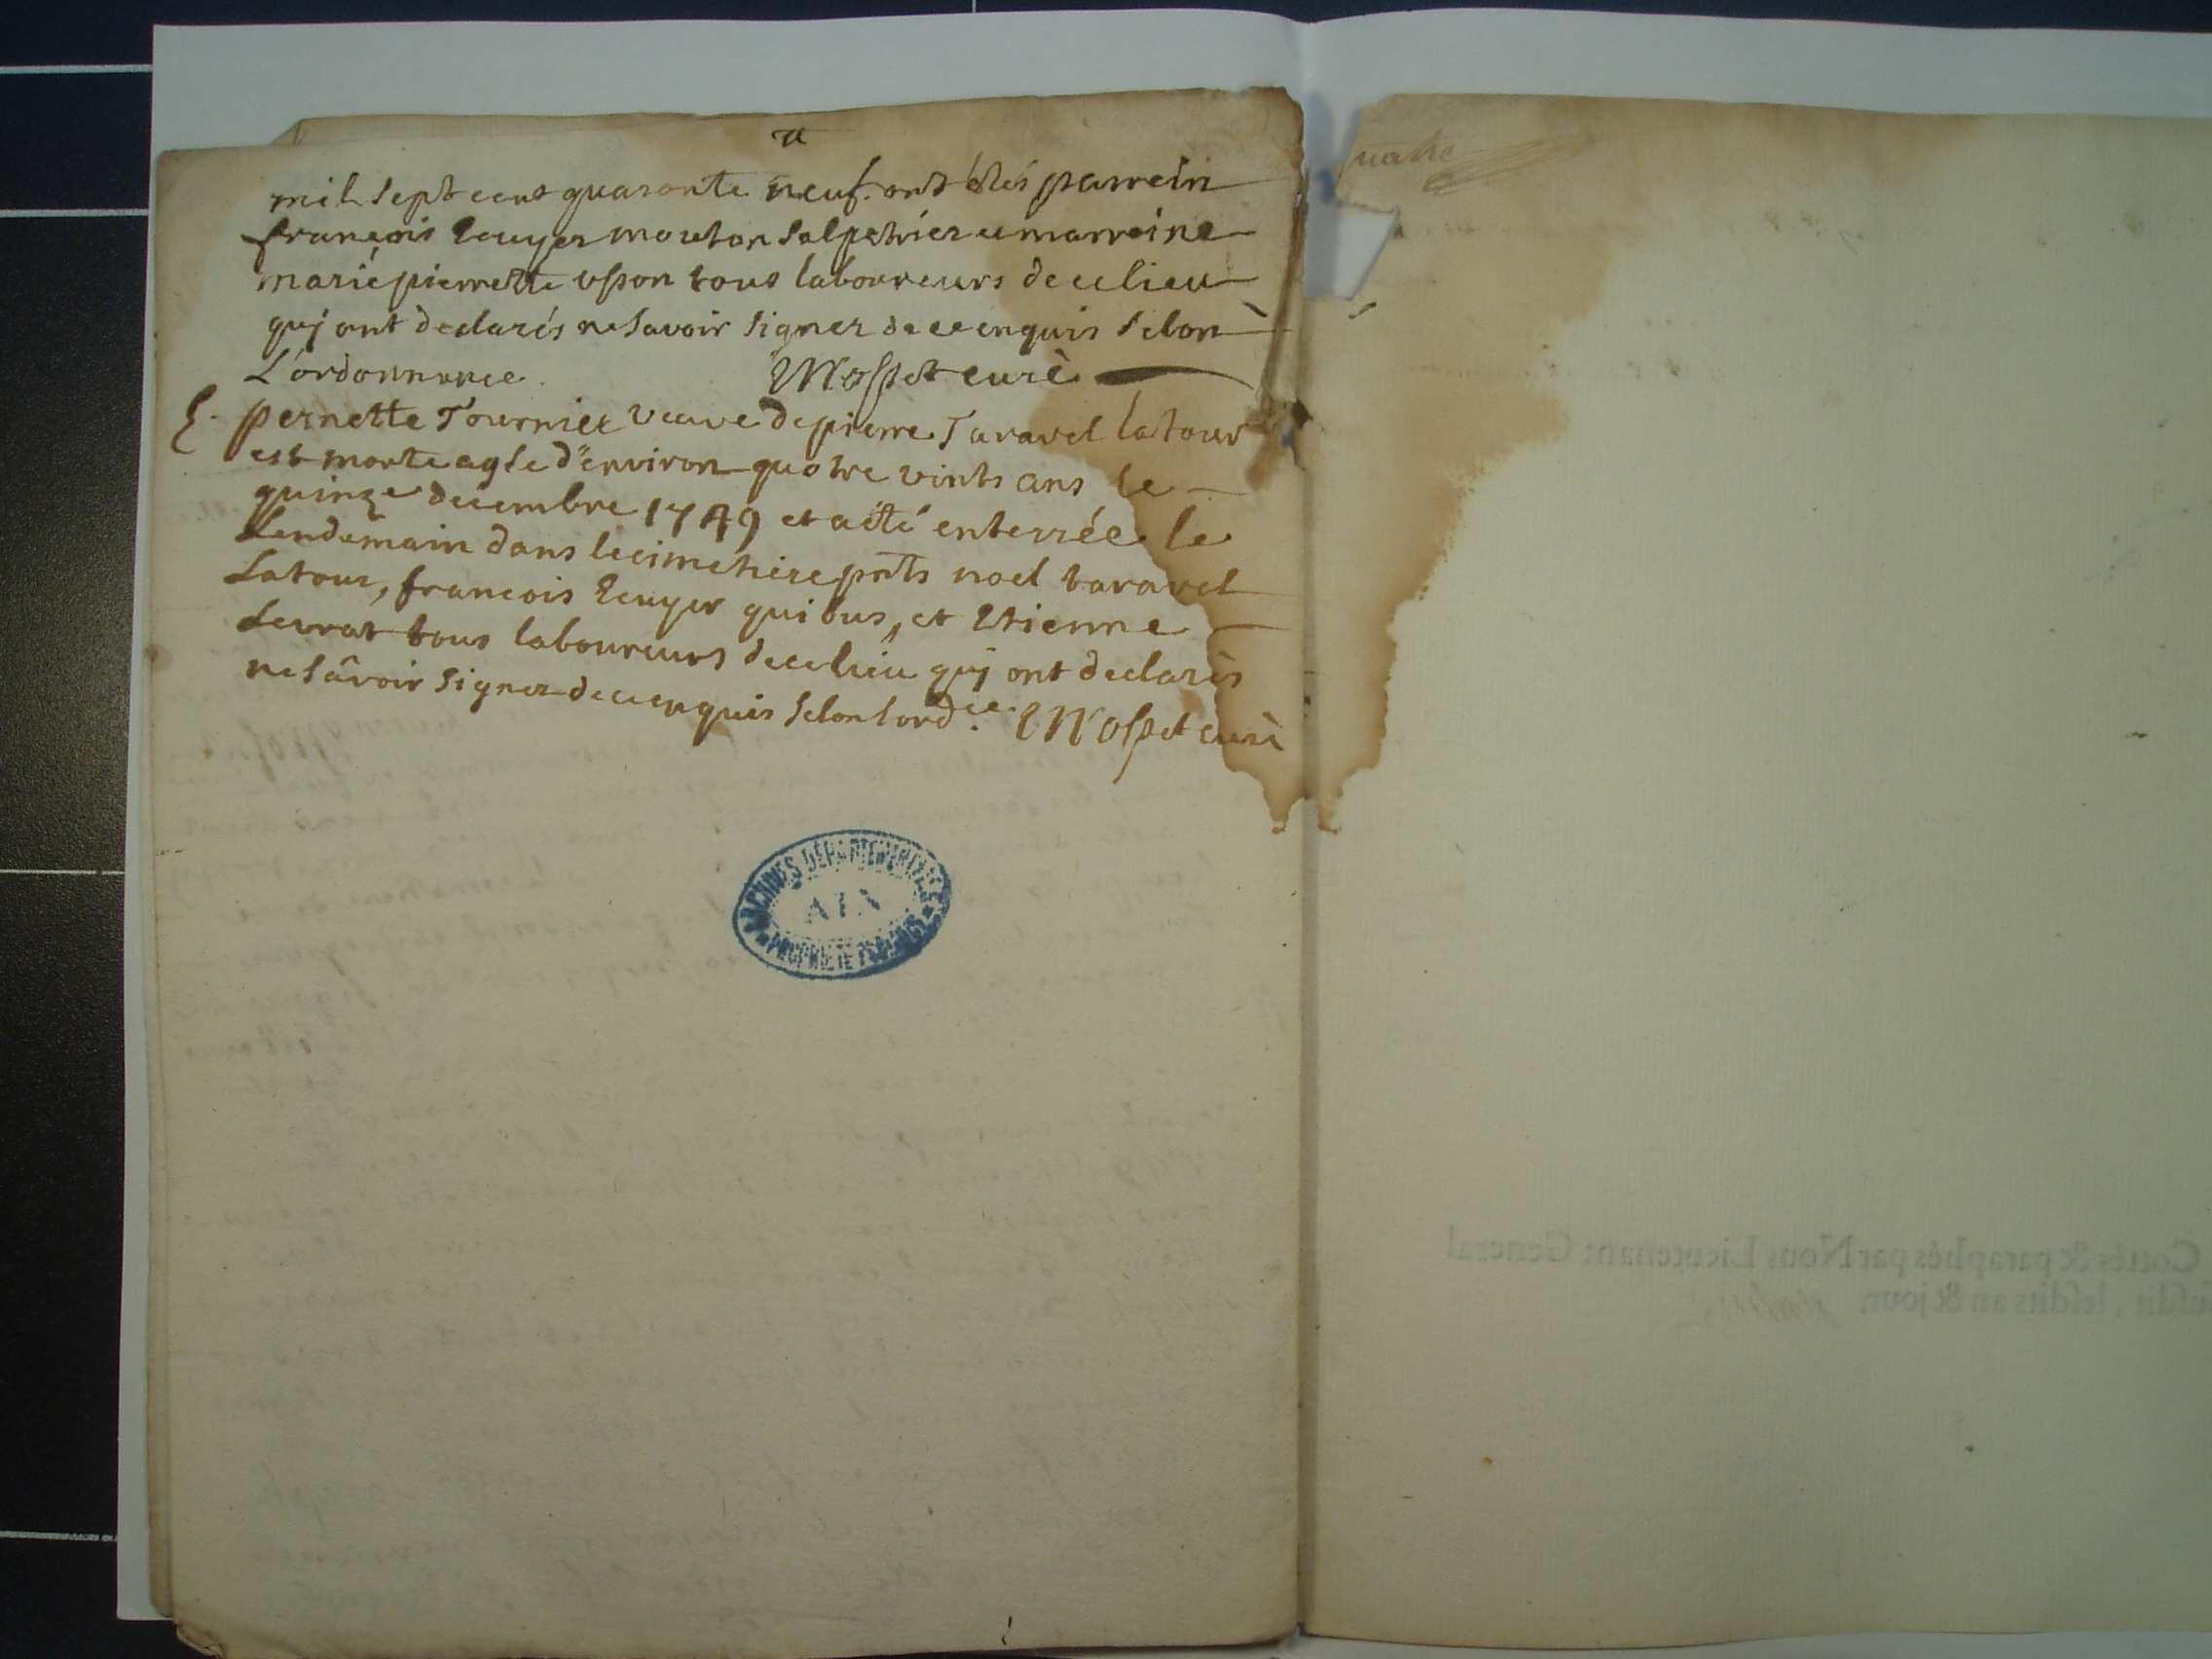 mil sept cent quaronte neuf. ont étés parrein
françois Ecuyer mouton salpetrier et marreine
marie pierrette usson tous laboureurs de ce lieu
quj ont declarés ne savoir signer de ce enquis selon
L'ordonnance. Mospet curè
E. pernette Tournier veuve de pierre Taravel latour
est morte agée d'environ quatre vints ans le
quinze decembre 1749 et a été enterrée le
Lendemain dans le cimetiere pnts noel taravel
Latour, francois Ecuyer quibus, et Etienne
Levrat tous laboureurs de ce lieu quj ont declarès
ne sâvoir signer de ce enquis selon lord.ce Mospet curè
ARCHIVES DÉPARTEMENTALES
AIN
PROPRIÉTÉ PUBLIQUE
uatre
Cottés & paraphés par Nous Lieutenant General
susdit, lesdits an & jour.